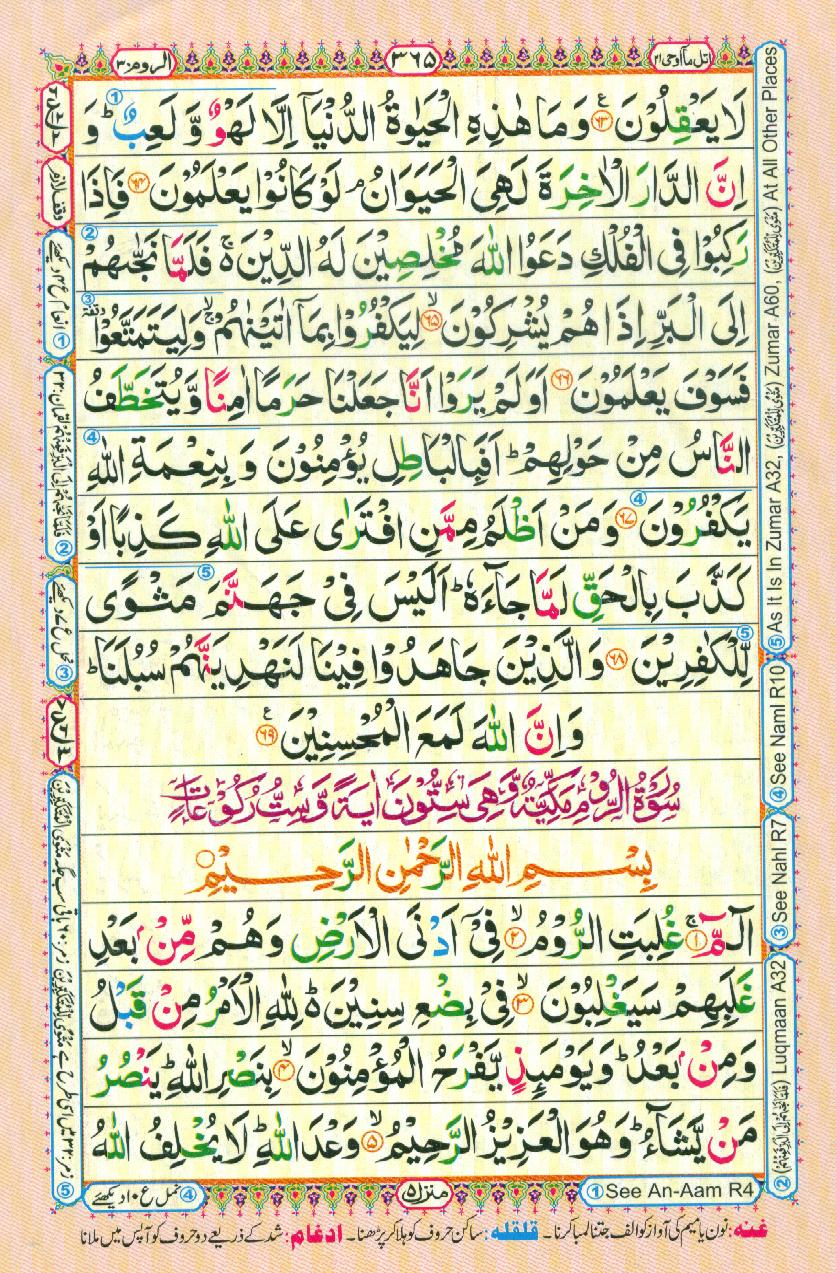 اتل ما اوحی ۲۱
۳۶۵
الروم ۳۰
لَا يَعْقِلُوْنَ ۶۳ وَمَا هٰذِهِ الْحَيٰوةُ الدُّنْيَاۤ اِلَّا لَهْوٌ وَّ لَعِبٌ ؕ وَ
اِنَّ الدَّارَ الْاٰخِرَةَ لَهِيَ الْحَيَوَانُ ۘ لَوْ كَانُوْا يَعْلَمُوْنَ ۶۴ فَاِذَا
رَكِبُوْا فِي الْفُلْكِ دَعَوُا اللّٰهَ مُخْلِصِيْنَ لَهُ الدِّيْنَ ۚ فَلَمَّا نَجّٰىهُمْ
اِلَى الْبَرِّ اِذَا هُمْ يُشْرِكُوْنَ ۙ ۶۵ لِيَكْفُرُوْا بِمَاۤ اٰتَيْنٰهُمْ ۚۙ وَلِيَتَمَتَّعُوْا ۥ
فَسَوْفَ يَعْلَمُوْنَ ۶۶ اَوَلَمْ يَرَوْا اَنَّا جَعَلْنَا حَرَمًا اٰمِنًا وَّيُتَخَطَّفُ
النَّاسُ مِنْ حَوْلِهِمْ ؕ اَفَبِالْبَاطِلِ يُؤْمِنُوْنَ وَبِنِعْمَةِ اللّٰهِ
يَكْفُرُوْنَ ۶۷ وَمَنْ اَظْلَمُ مِمَّنِ افْتَرٰى عَلَى اللّٰهِ كَذِبًا اَوْ
كَذَّبَ بِالْحَقِّ لَمَّا جَآءَهٗ ؕ اَلَيْسَ فِيْ جَهَنَّمَ مَثْوًى
لِّلْكٰفِرِيْنَ ۶۸ وَالَّذِيْنَ جَاهَدُوْا فِيْنَا لَنَهْدِيَنَّهُمْ سُبُلَنَا ؕ
وَاِنَّ اللّٰهَ لَمَعَ الْمُحْسِنِيْنَ ۶۹
سُوْرَةُ الرُّوْمِ مَكِّيَّةٌ وَّهِيَ سِتُّوْنَ اٰيَةً وَّسِتُّ رُكُوْعَاتٍ
بِسْمِ اللّٰهِ الرَّحْمٰنِ الرَّحِيْمِ
الٓمّٓ ۚ ۱ غُلِبَتِ الرُّوْمُ ۙ ۲ فِيْۤ اَدْنَى الْاَرْضِ وَهُمْ مِّنْۢ بَعْدِ
غَلَبِهِمْ سَيَغْلِبُوْنَ ۙ ۳ فِيْ بِضْعِ سِنِيْنَ ؕ لِلّٰهِ الْاَمْرُ مِنْ قَبْلُ
وَمِنْۢ بَعْدُ ؕ وَيَوْمَئِذٍ يَّفْرَحُ الْمُؤْمِنُوْنَ ۙ ۴ بِنَصْرِ اللّٰهِ ؕ يَنْصُرُ
مَنْ يَّشَآءُ ؕ وَهُوَ الْعَزِيْزُ الرَّحِيْمُ ۙ ۵ وَعْدَ اللّٰهِ ؕ لَا يُخْلِفُ اللّٰهُ
① See An-Aam R4
منزل ۵
④ نمل ع ۱۰ دیکھئے
② Luqmaan A32
③ See Nahl R7
④ See Naml R10
⑤ As It Is In Zumar A32, Zumar A60, At All Other Places
① انعام ع ۴ دیکھئے
③ نحل ع ۷ دیکھئے
غنه: نون یا میم کی آواز کو الف جتنا لمبا کرنا۔ قلقله: ساکن حروف کو ہلا کر پڑھنا۔ ادغام: شد کے ذریعے دو حروف کو آپس میں ملانا